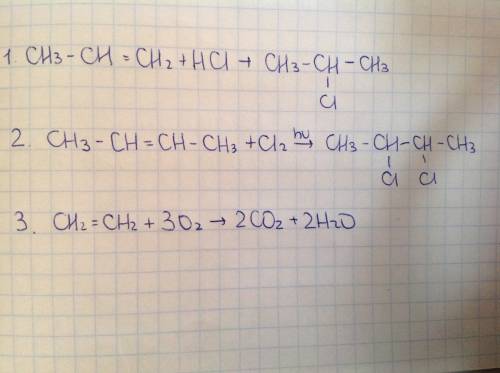 1. CH3-CH=CH2+HCl→ CH3-CH-CH3
Cl
2. CH3-CH=CH-CH3+Cl2 hν→ CH3-CH-CH-CH3
Cl Cl
3. CH2=CH2+3O2→2CO2+2H2O